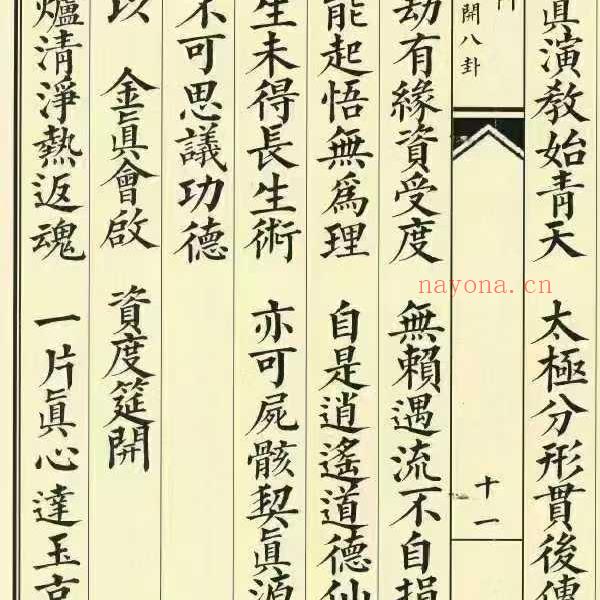 眞演敎始靑天 太極分形貫後傳
開八卦
十一
劫有緣資受度 無賴遇流不自損
能起悟無爲理 自是逍遙道德仙
生未得長生術 亦可屍骸契眞源
不可思議功德
以 金眞會啟 資度筵開
爐淸淨熱返魂 一片眞心達玉京
nayona.cn